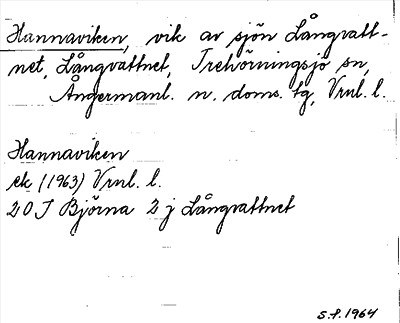 Hannaviken, vik av sjön Långvatt-
net, Långvattnet, Trehörningsjö sn,
Ångermanl. n. doms. tg, Vrnl. l.
Hannaviken
ek (1963) Vrnl. l.
20 J Björna 2 j Långvattnet
S.P. 1964